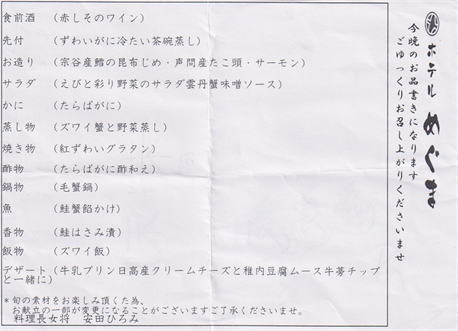 ホテル めぐま
今晩のお品書きになります
ごゆっくりお召し上がりくださいませ
食前酒 （赤しそのワイン）
先付 （ずわいがに冷たい茶碗蒸し）
お造り （宗谷産鱈の昆布じめ・声問産たこ頭・サーモン）
サラダ （えびと彩り野菜のサラダ雲丹蟹味噌ソース）
かに （たらばがに）
蒸し物 （ズワイ蟹と野菜蒸し）
焼き物 （紅ずわいグラタン）
酢物 （たらばがに酢和え）
鍋物 （毛蟹鍋）
魚 （鮭蟹餡かけ）
香物 （鮭はさみ漬）
飯物 （ズワイ飯）
デザート（牛乳プリン日高産クリームチーズと稚内豆腐ムース牛蒡チップ
と一緒に）
＊旬の素材をお楽しみ頂く為、
お献立の一部が変更になることがございますご了承くださいませ。
料理長女将 安田ひろみ